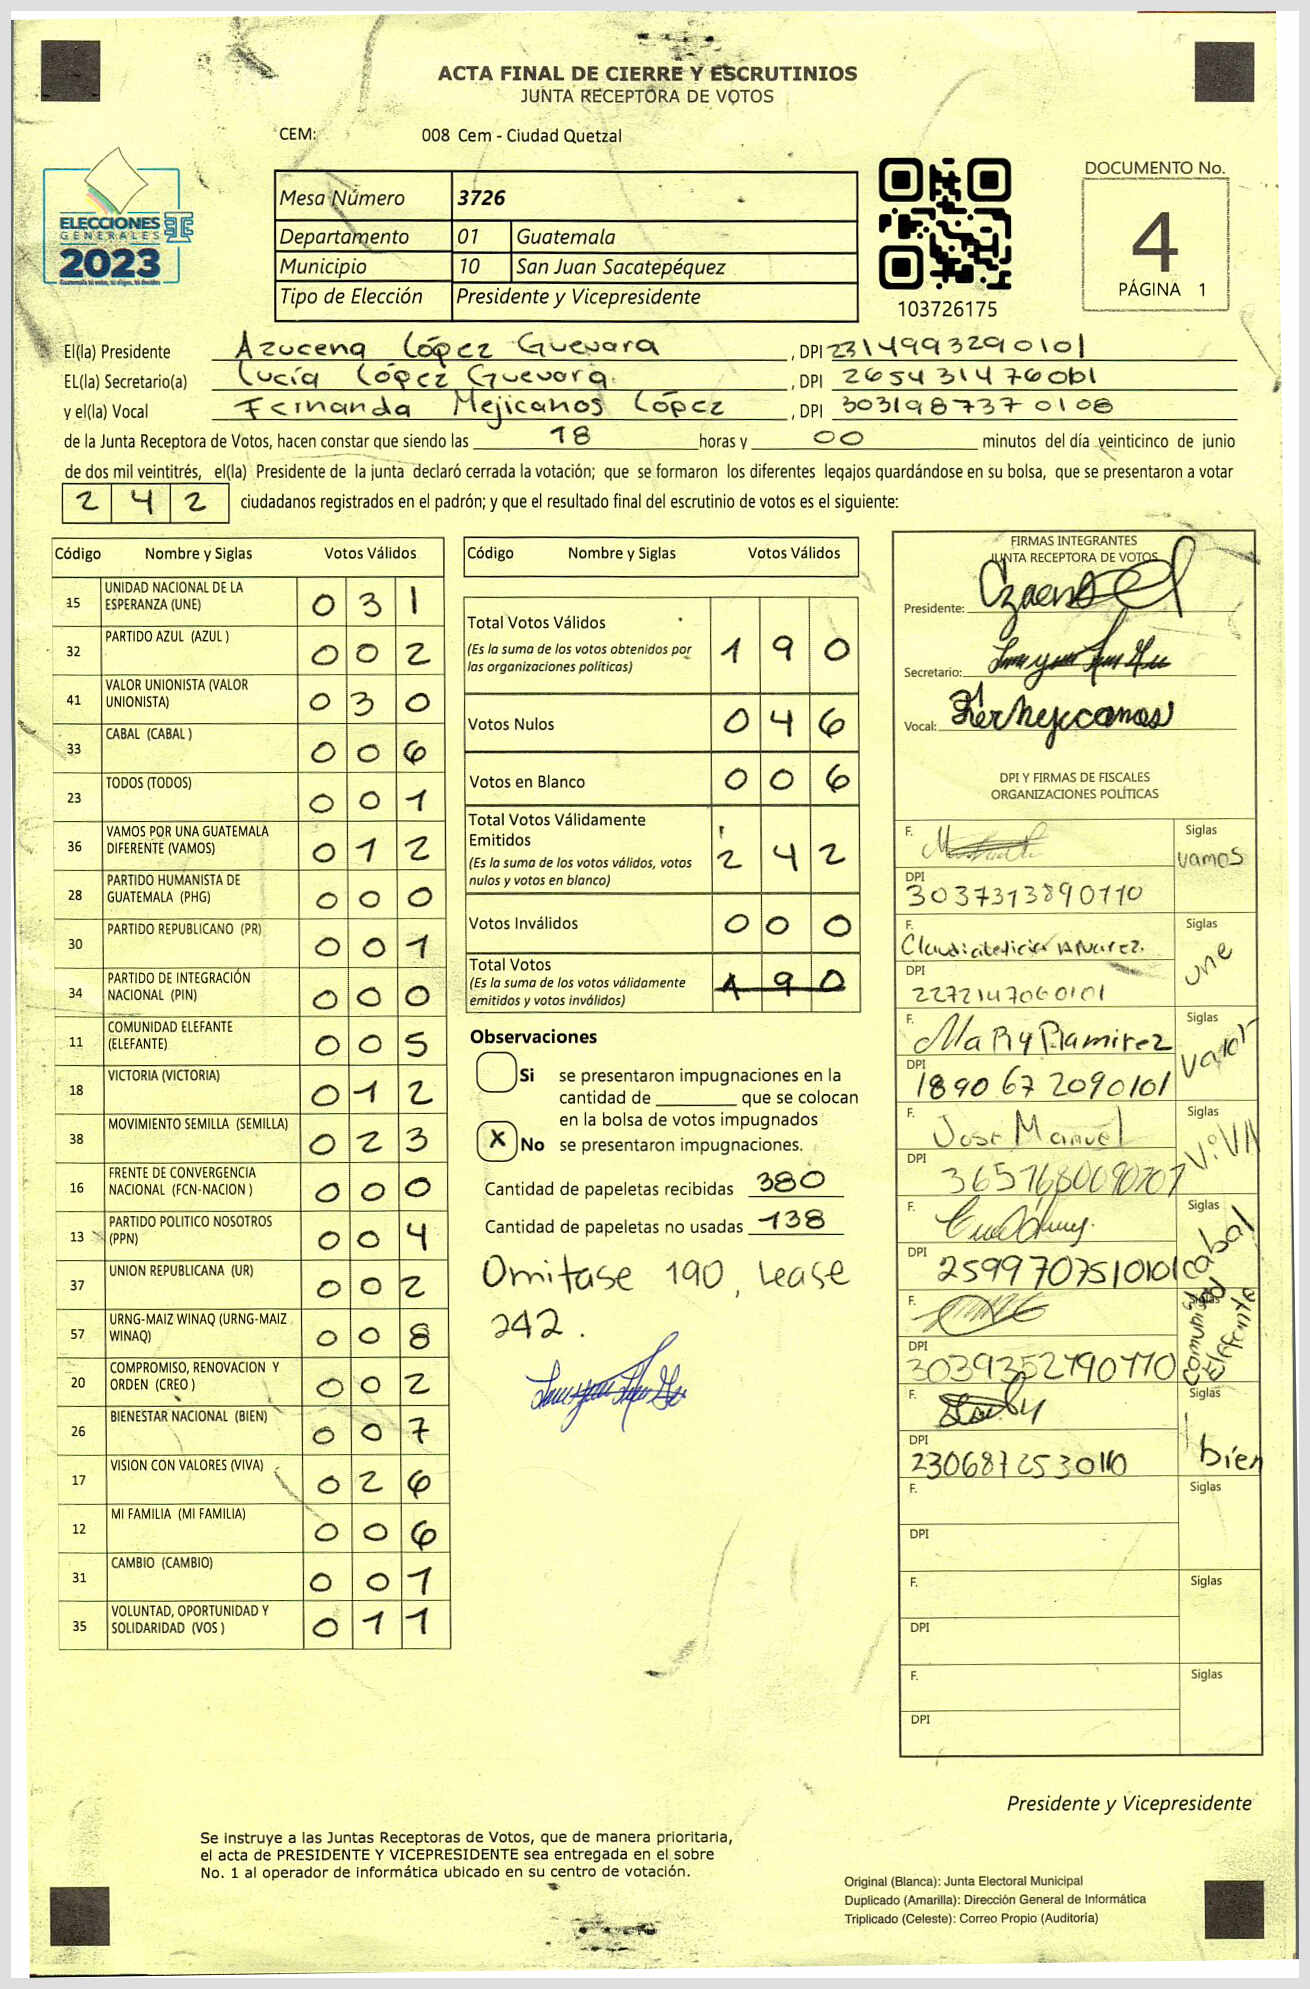 ACTA FINAL DE CIERRE Y ESCRUTINIOS
JUNTA RECEPTORA DE VOTOS
CEM: 008 Cem - Ciudad Quetzal
ELECCIONES
GENERALES
2023
Mesa Número 3726
Departamento 01 Guatemala
Municipio 10 San Juan Sacatepéquez
Tipo de Elección Presidente y Vicepresidente
103726175
DOCUMENTO No.
4
PÁGINA 1
El(la) Presidente Azucena López Guevara, DPI 2314993290101
EL(la) Secretario(a) Lucía López Guevara, DPI
y el(la) Vocal Fernanda Mejicanos López, DPI 3031987370108
de la Junta Receptora de Votos, hacen constar que siendo las 18 horas y 00 minutos del día veinticinco de junio
de dos mil veintitrés, el(la) Presidente de la junta declaró cerrada la votación; que se formaron los diferentes legajos guardándose en su bolsa, que se presentaron a votar
242 ciudadanos registrados en el padrón; y que el resultado final del escrutinio de votos es el siguiente:
Código Nombre y Siglas Votos Válidos
15 UNIDAD NACIONAL DE LA ESPERANZA (UNE) 031
32 PARTIDO AZUL (AZUL ) 002
41 VALOR UNIONISTA (VALOR UNIONISTA) 030
33 CABAL (CABAL ) 006
23 TODOS (TODOS) 001
36 VAMOS POR UNA GUATEMALA DIFERENTE (VAMOS) 012
28 PARTIDO HUMANISTA DE GUATEMALA (PHG) 000
30 PARTIDO REPUBLICANO (PR) 001
34 PARTIDO DE INTEGRACIÓN NACIONAL (PIN) 000
11 COMUNIDAD ELEFANTE (ELEFANTE) 005
18 VICTORIA (VICTORIA) 012
38 MOVIMIENTO SEMILLA (SEMILLA) 023
16 FRENTE DE CONVERGENCIA NACIONAL (FCN-NACION ) 000
13 PARTIDO POLITICO NOSOTROS (PPN) 004
37 UNION REPUBLICANA (UR) 002
57 URNG-MAIZ WINAQ (URNG-MAIZ WINAQ) 008
20 COMPROMISO, RENOVACION Y ORDEN (CREO ) 002
26 BIENESTAR NACIONAL (BIEN) 007
17 VISION CON VALORES (VIVA) 026
12 MI FAMILIA (MI FAMILIA) 006
31 CAMBIO (CAMBIO) 001
35 VOLUNTAD, OPORTUNIDAD Y SOLIDARIDAD (VOS ) 011
Código Nombre y Siglas Votos Válidos
Total Votos Válidos 190
(Es la suma de los votos obtenidos por
las organizaciones políticas)
Votos Nulos 046
Votos en Blanco 006
Total Votos Válidamente
Emitidos 242
(Es la suma de los votos válidos, votos
nulos y votos en blanco)
Votos Inválidos 000
Total Votos 190
(Es la suma de los votos válidamente
emitidos y votos inválidos)
Observaciones
Si se presentaron impugnaciones en la
cantidad de ________ que se colocan
en la bolsa de votos impugnados
X No se presentaron impugnaciones.
Cantidad de papeletas recibidas 380
Cantidad de papeletas no usadas 138
Omitase 190, Lease
242.
FIRMAS INTEGRANTES
JUNTA RECEPTORA DE VOTOS
Presidente:
Secretario:
Vocal: Fer Mejicanos
DPI Y FIRMAS DE FISCALES
ORGANIZACIONES POLÍTICAS
F. Siglas vamos
DPI 3037313890110
F. Siglas une
DPI 2272147060101
F. Mary Ramirez Siglas Valor
DPI 1890672090101
F. José Manuel Siglas ViVA
DPI
F. Siglas cabal
DPI 2599707510101
F. Siglas Comunidad Elefante
DPI 3039352790110
F. Siglas bien
DPI
F. Siglas
DPI
F. Siglas
DPI
F. Siglas
DPI
Presidente y Vicepresidente
Se instruye a las Juntas Receptoras de Votos, que de manera prioritaria,
el acta de PRESIDENTE Y VICEPRESIDENTE sea entregada en el sobre
No. 1 al operador de informática ubicado en su centro de votación.
Original (Blanca): Junta Electoral Municipal
Duplicado (Amarilla): Dirección General de Informática
Triplicado (Celeste): Correo Propio (Auditoría)